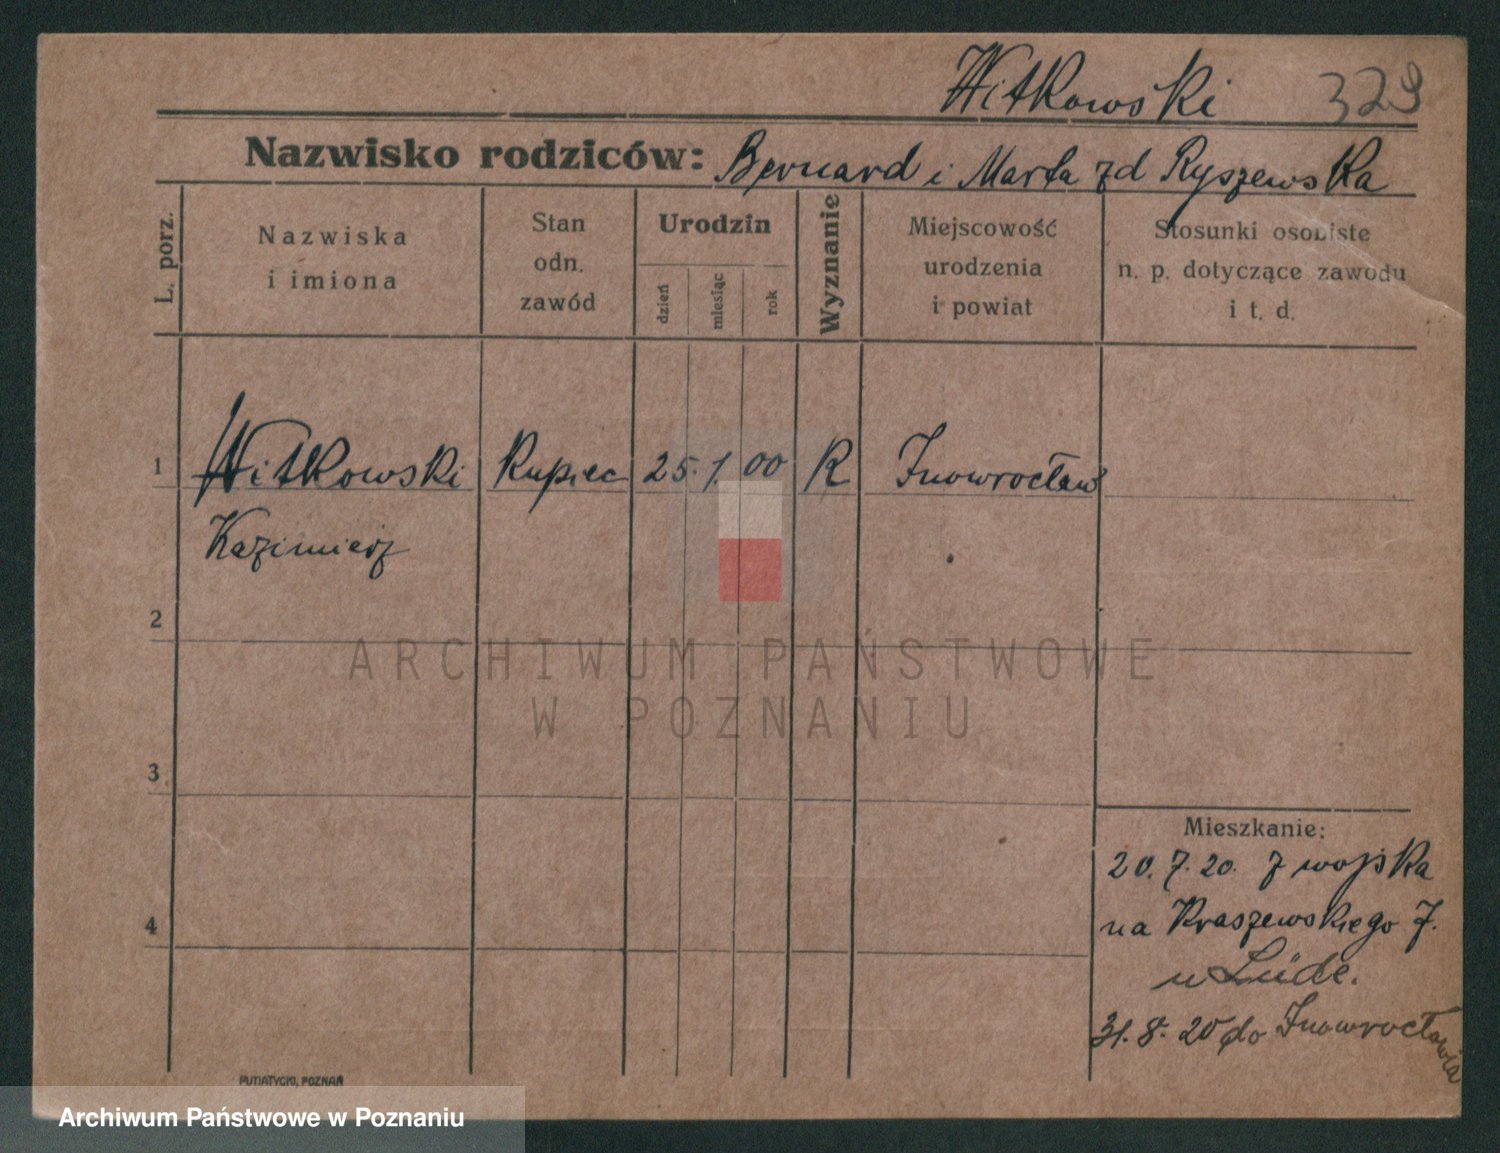 Witkowski 329
Nazwisko rodziców: Bernard i Marta zd Ryszewska
L. porz.
Nazwiska
i imiona
Stan
odn.
zawód
Urodzin
dzień
miesiąc
rok
Wyznanie
Miejscowość
urodzenia
i powiat
Stosunki osobiste
n. p. dotyczące zawodu
i t. d.
1 Witkowski Kupiec 25. 1. 00 R Inowrocław
Kazimierz
2
ARCHIWUM PAŃSTWOWE
W POZNANIU
3
Mieszkanie:
20. 7. 20. z wojska
4
na Kraszewskiego 7.
u Lüde.
31. 8. 20 do Inowrocławia
PUTIATYCKI, POZNAŃ
Archiwum Państwowe w Poznaniu